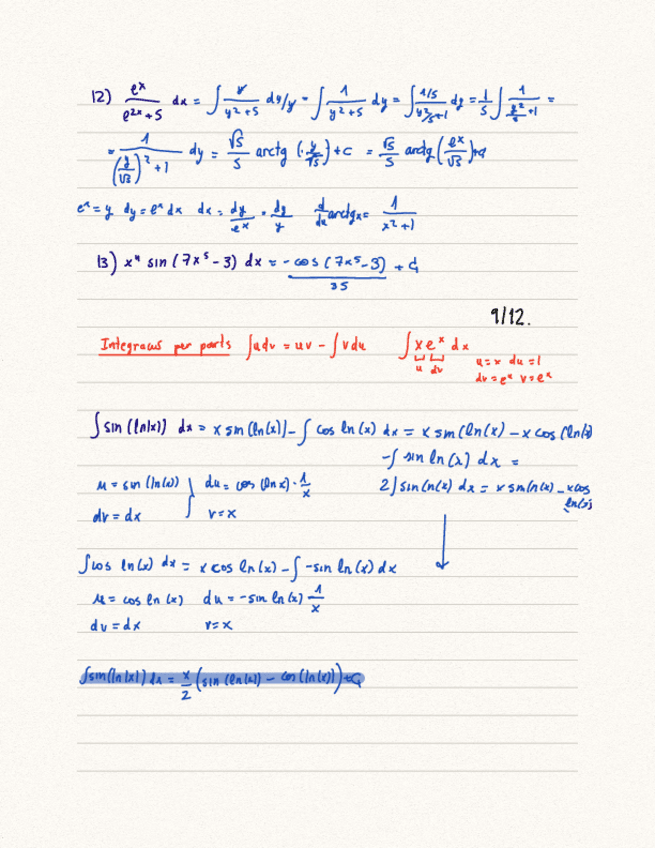 12) e^x/(e^{2x}+5) dx = ∫ y/(y²+5) dy/y = ∫ 1/(y²+5) dy = ∫ (1/5)/(y²/5+1) dy = 1/5 ∫ 1/(y²/5+1) =
= 1/((y/√5)²+1) dy = √5/5 arctg (y/√5) + C = √5/5 arctg (e^x/√5) + C
e^x = y dy = e^x dx dx = dy/e^x = dy/y d/dx arctgx = 1/(x²+1)
13) x⁴ sin (7x⁵-3) dx = -cos (7x⁵-3)/35 + C
9/12.
Integracus per parts ∫udv = uv - ∫vdu ∫xe^x dx
u dv u=x du=1
dv=e^x v=e^x
∫sin (ln(x)) dx = x sin (ln(x)) - ∫ cos ln(x) dx = x sin(ln(x) - x cos (ln(x)
-∫ sin ln(x) dx =
u = sin (ln(x)) du = cos (ln x) · 1/x 2∫sin(ln(x) dx = x sin(ln(x) - x cos
dv = dx v=x ln(x)
∫cos ln(x) dx = x cos ln(x) - ∫ -sin ln(x) dx
u = cos ln(x) du = -sin ln(x) 1/x
dv = dx v=x
∫sin(ln(x)) dx = x/2 (sin (ln(x)) - cos (ln(x))) + C